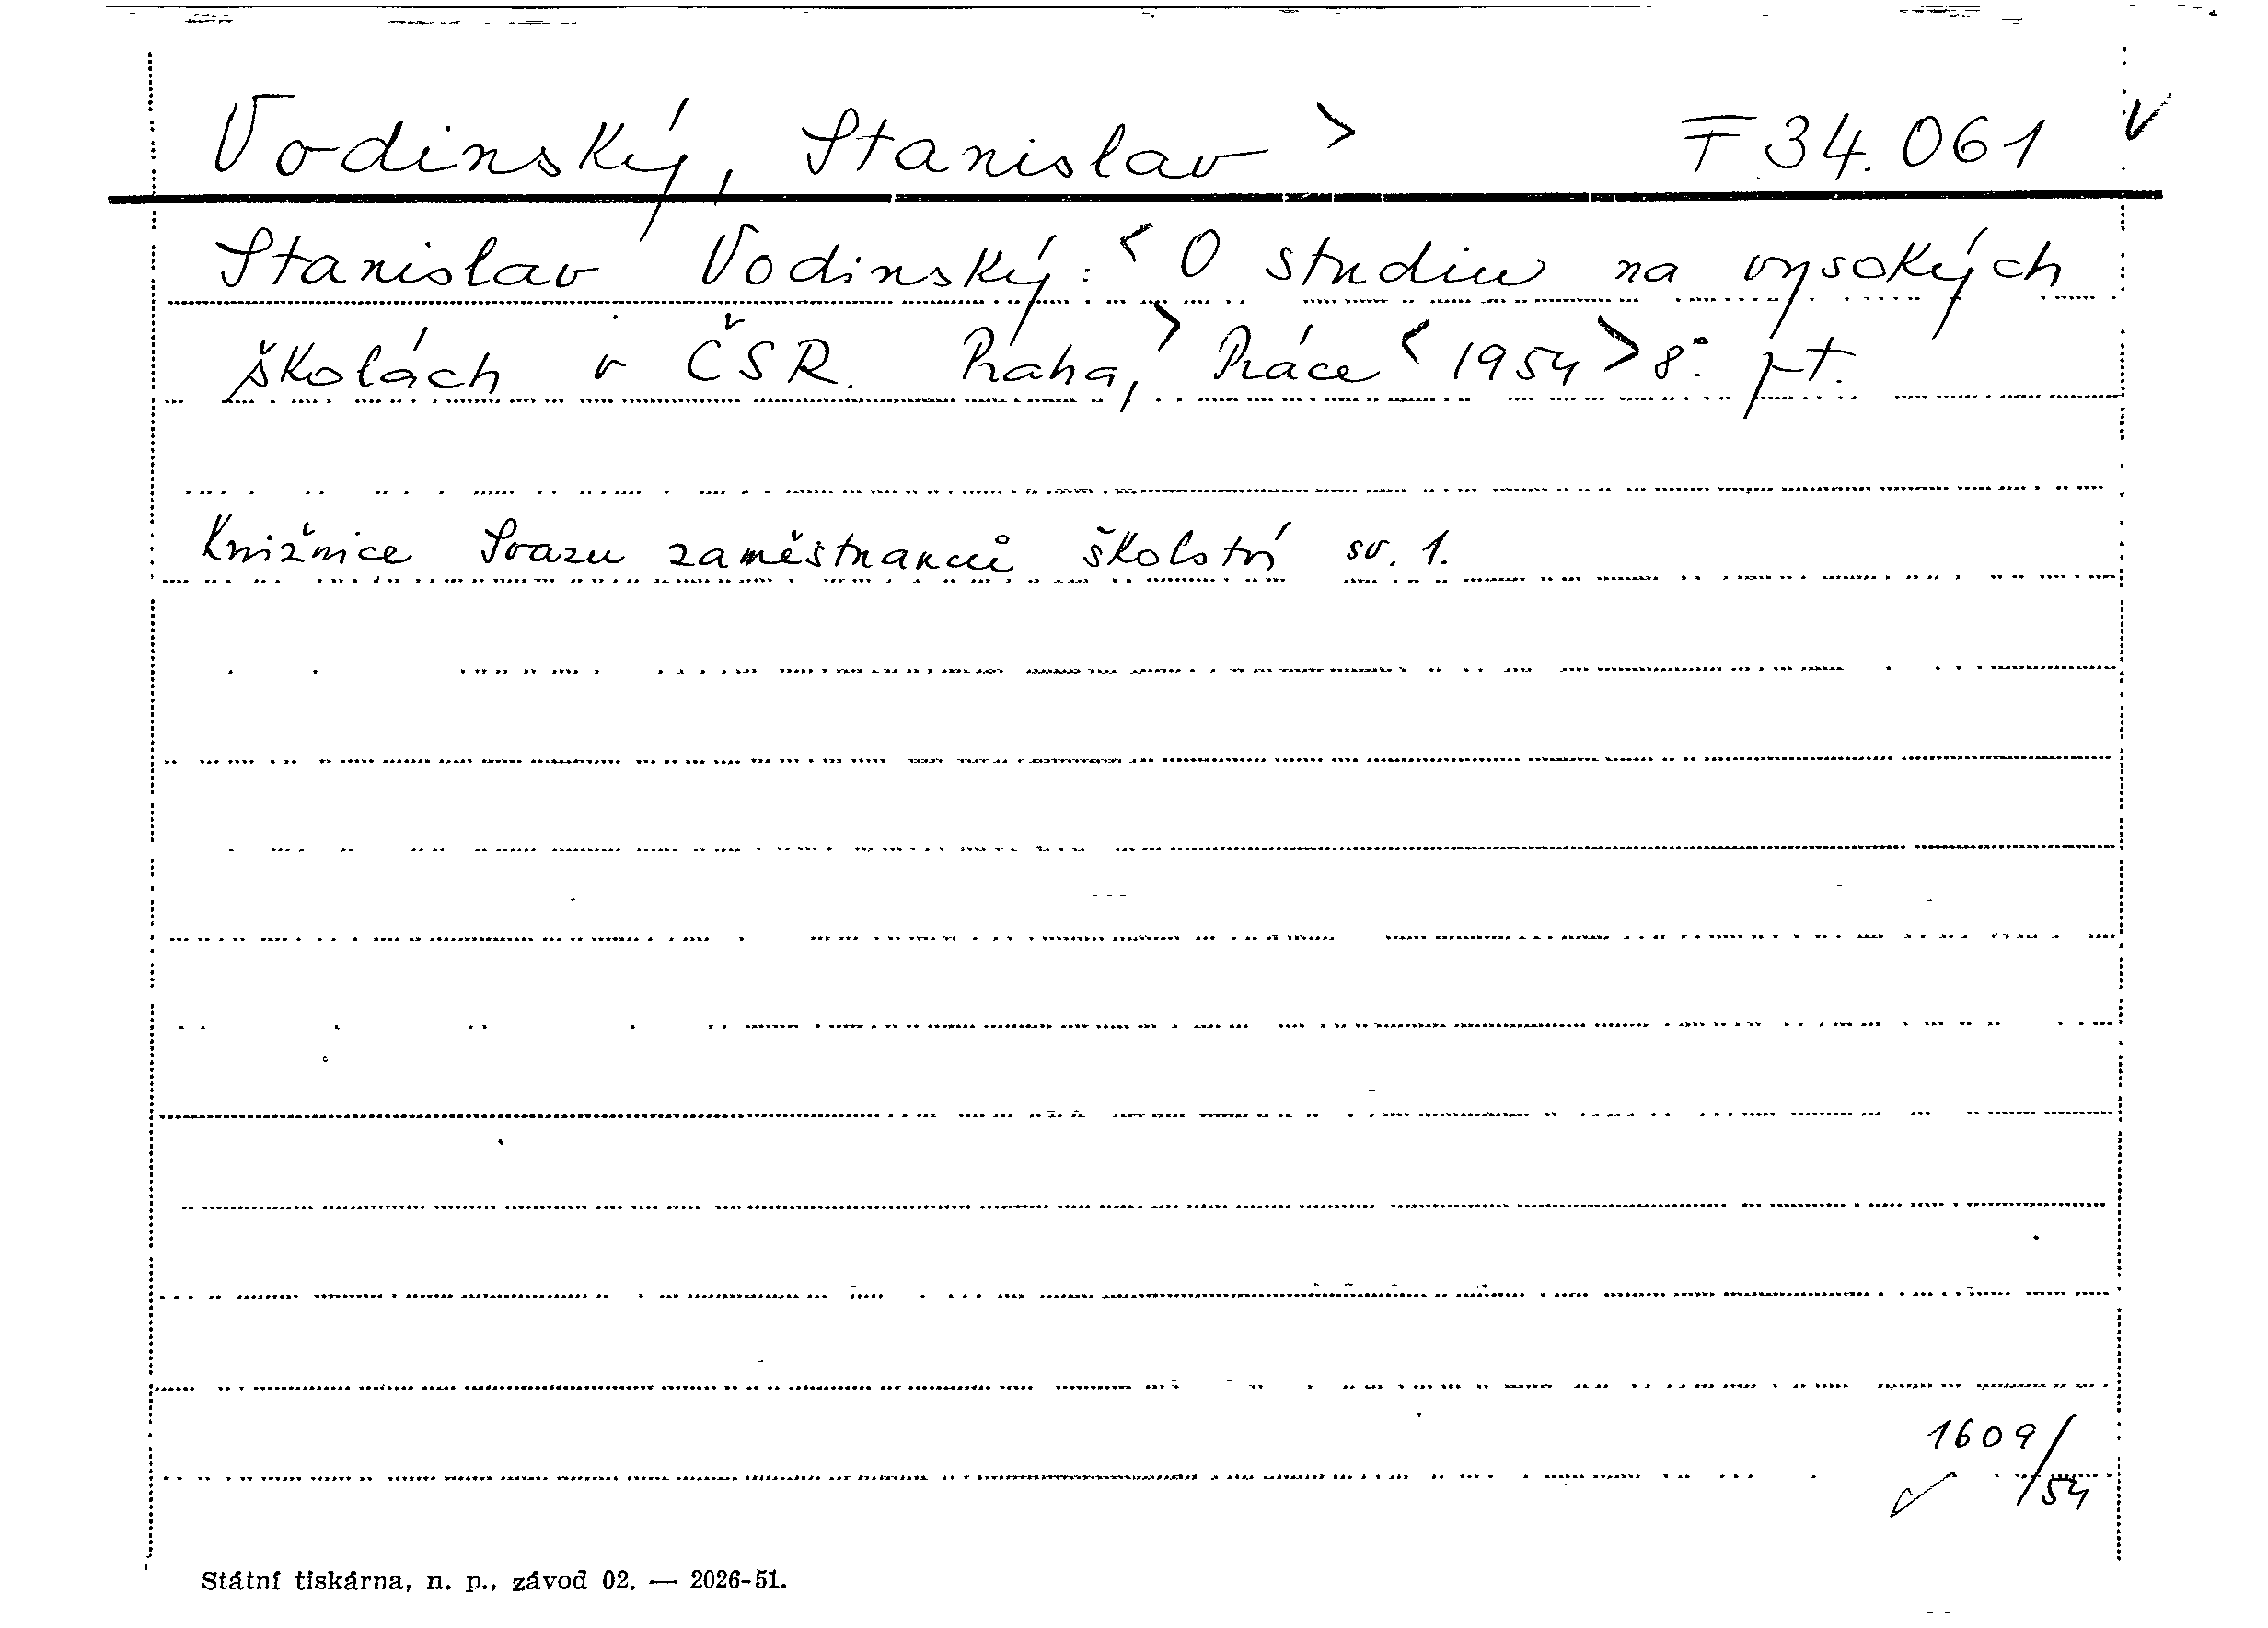 Vodinský, Stanislav > F 34.061 V
Stanislav Vodinský: < O studiu na vysokých
školách v ČSR. > Praha, Práce < 1954 > 8°. pt.
Knižnice Svazu zaměstnanců školství sv. 1.
1609/54
Státní tiskárna, n. p., závod 02. — 2026-51.